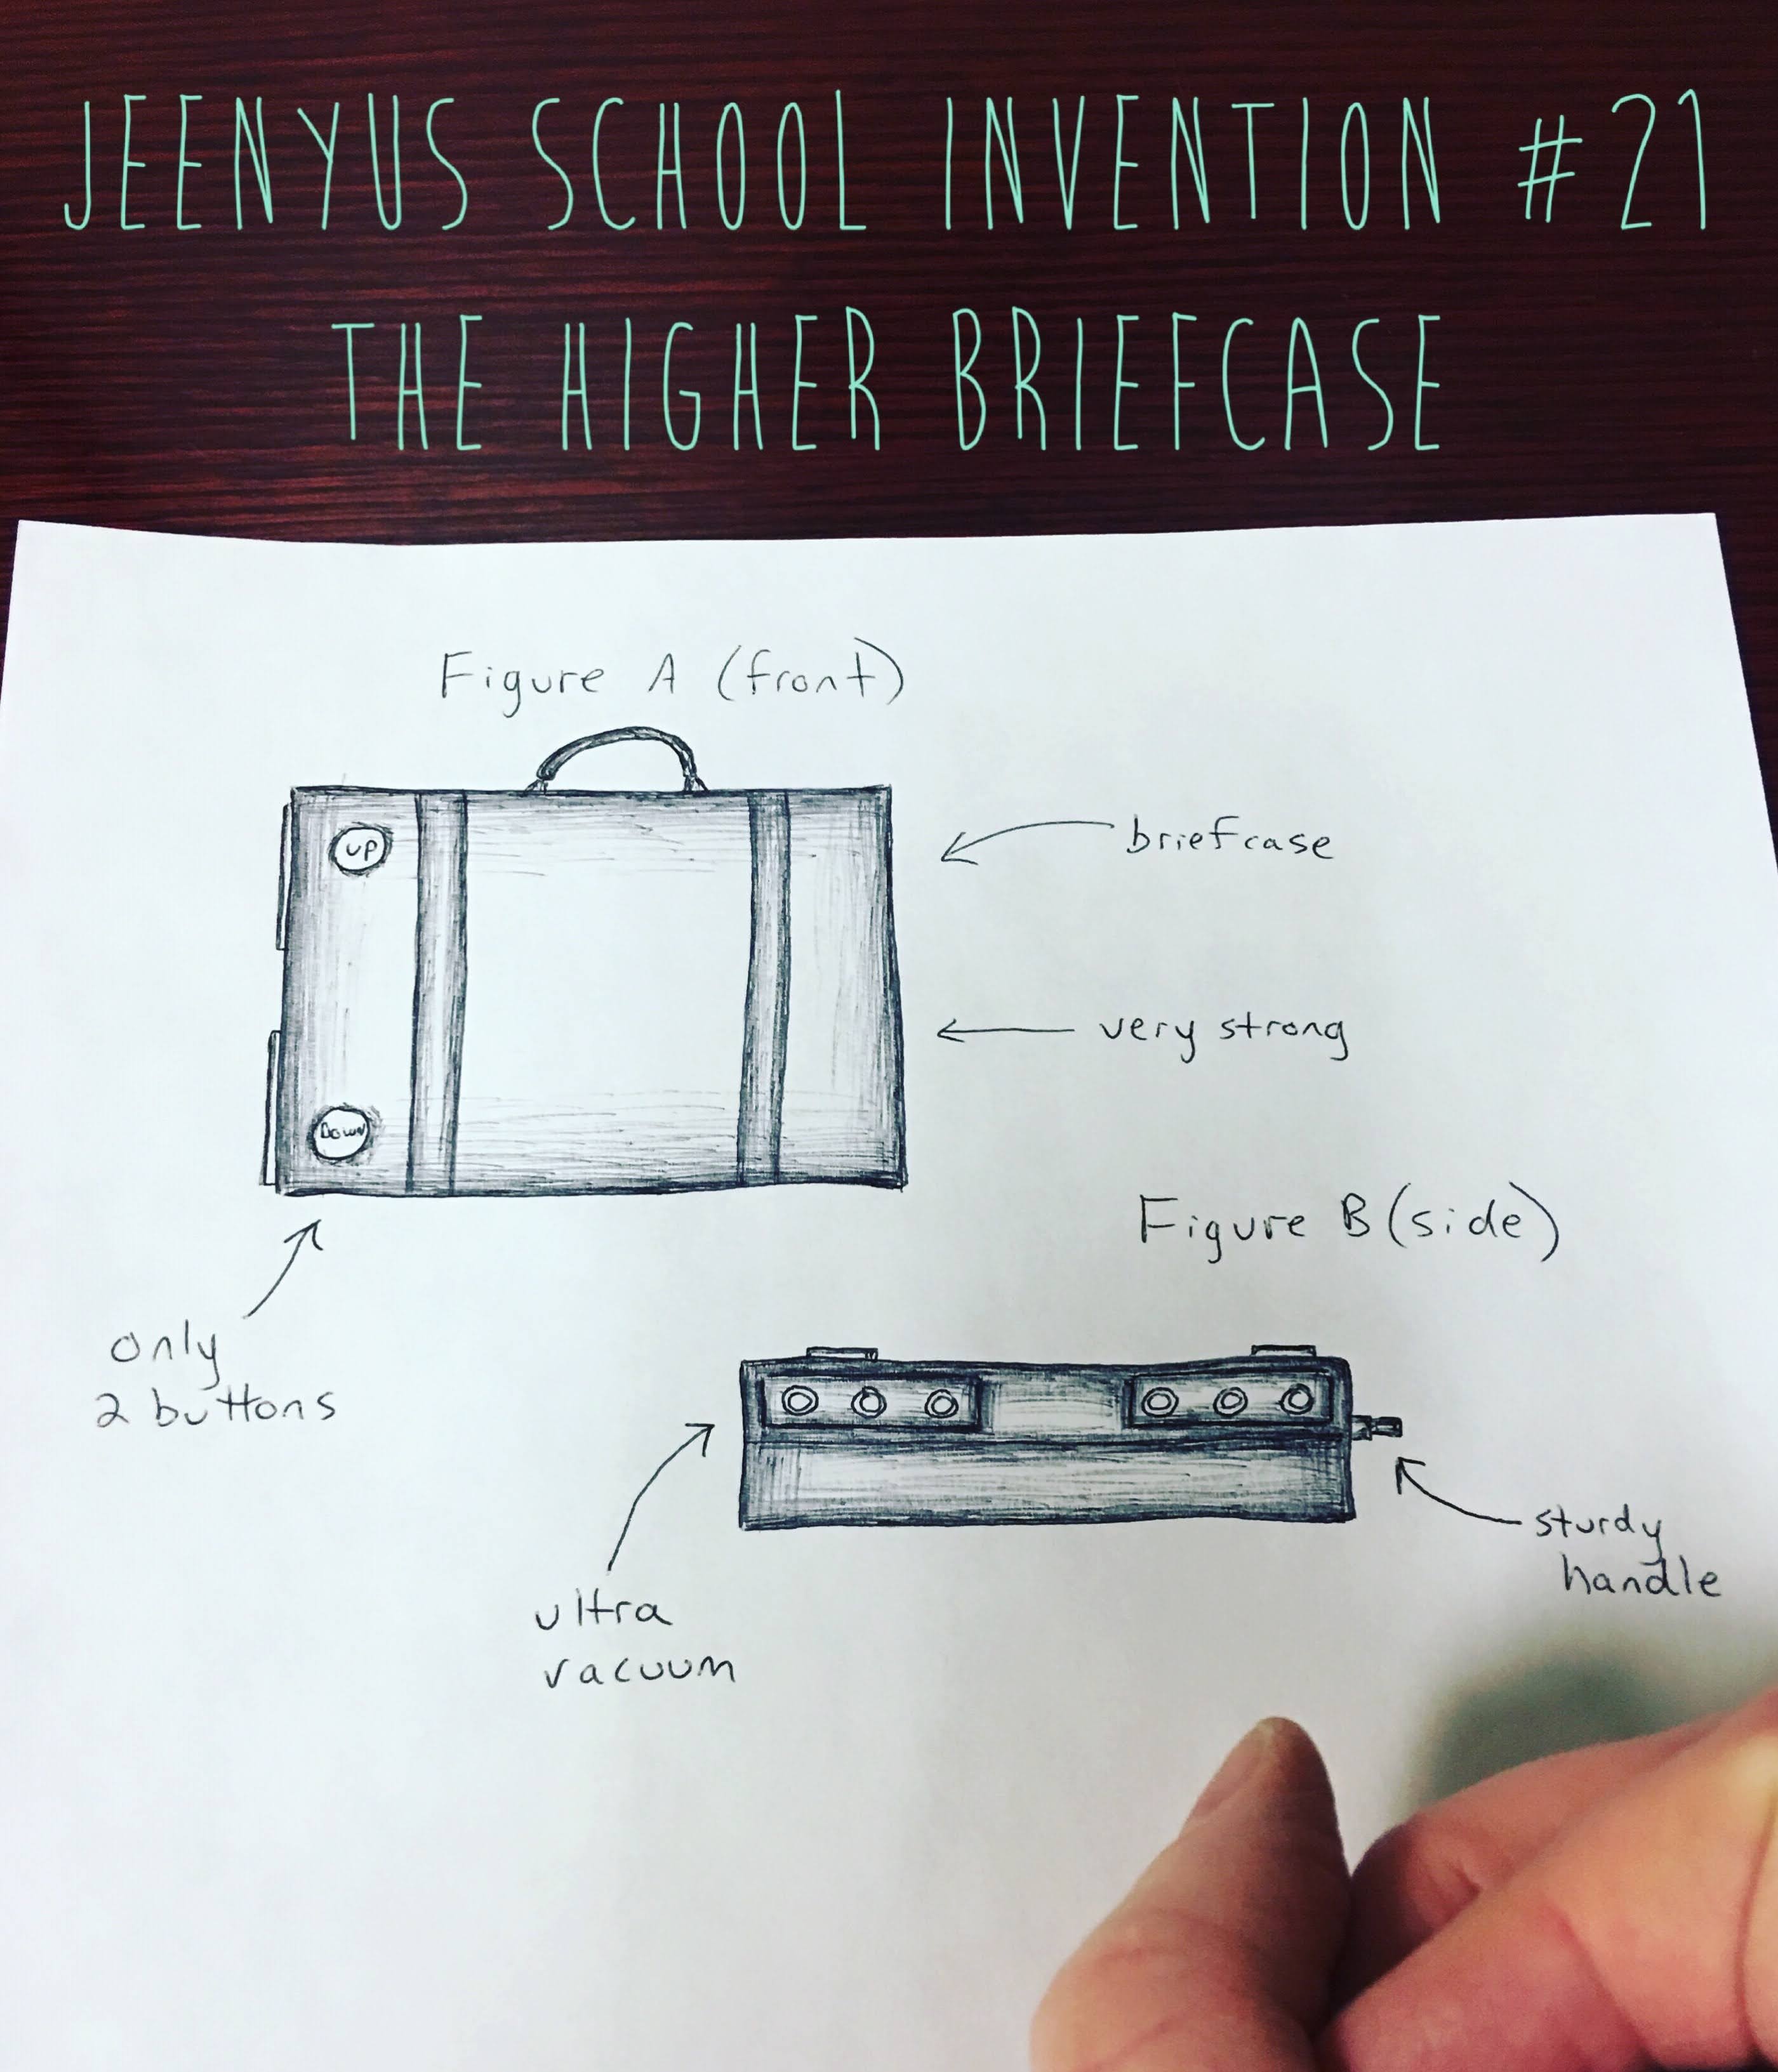 JEENYUS SCHOOL INVENTION #21
THE HIGHER BRIEFCASE
Figure A (front)
UP
briefcase
very strong
Down
Figure B (side)
only
2 buttons
sturdy
handle
ultra
vacuum